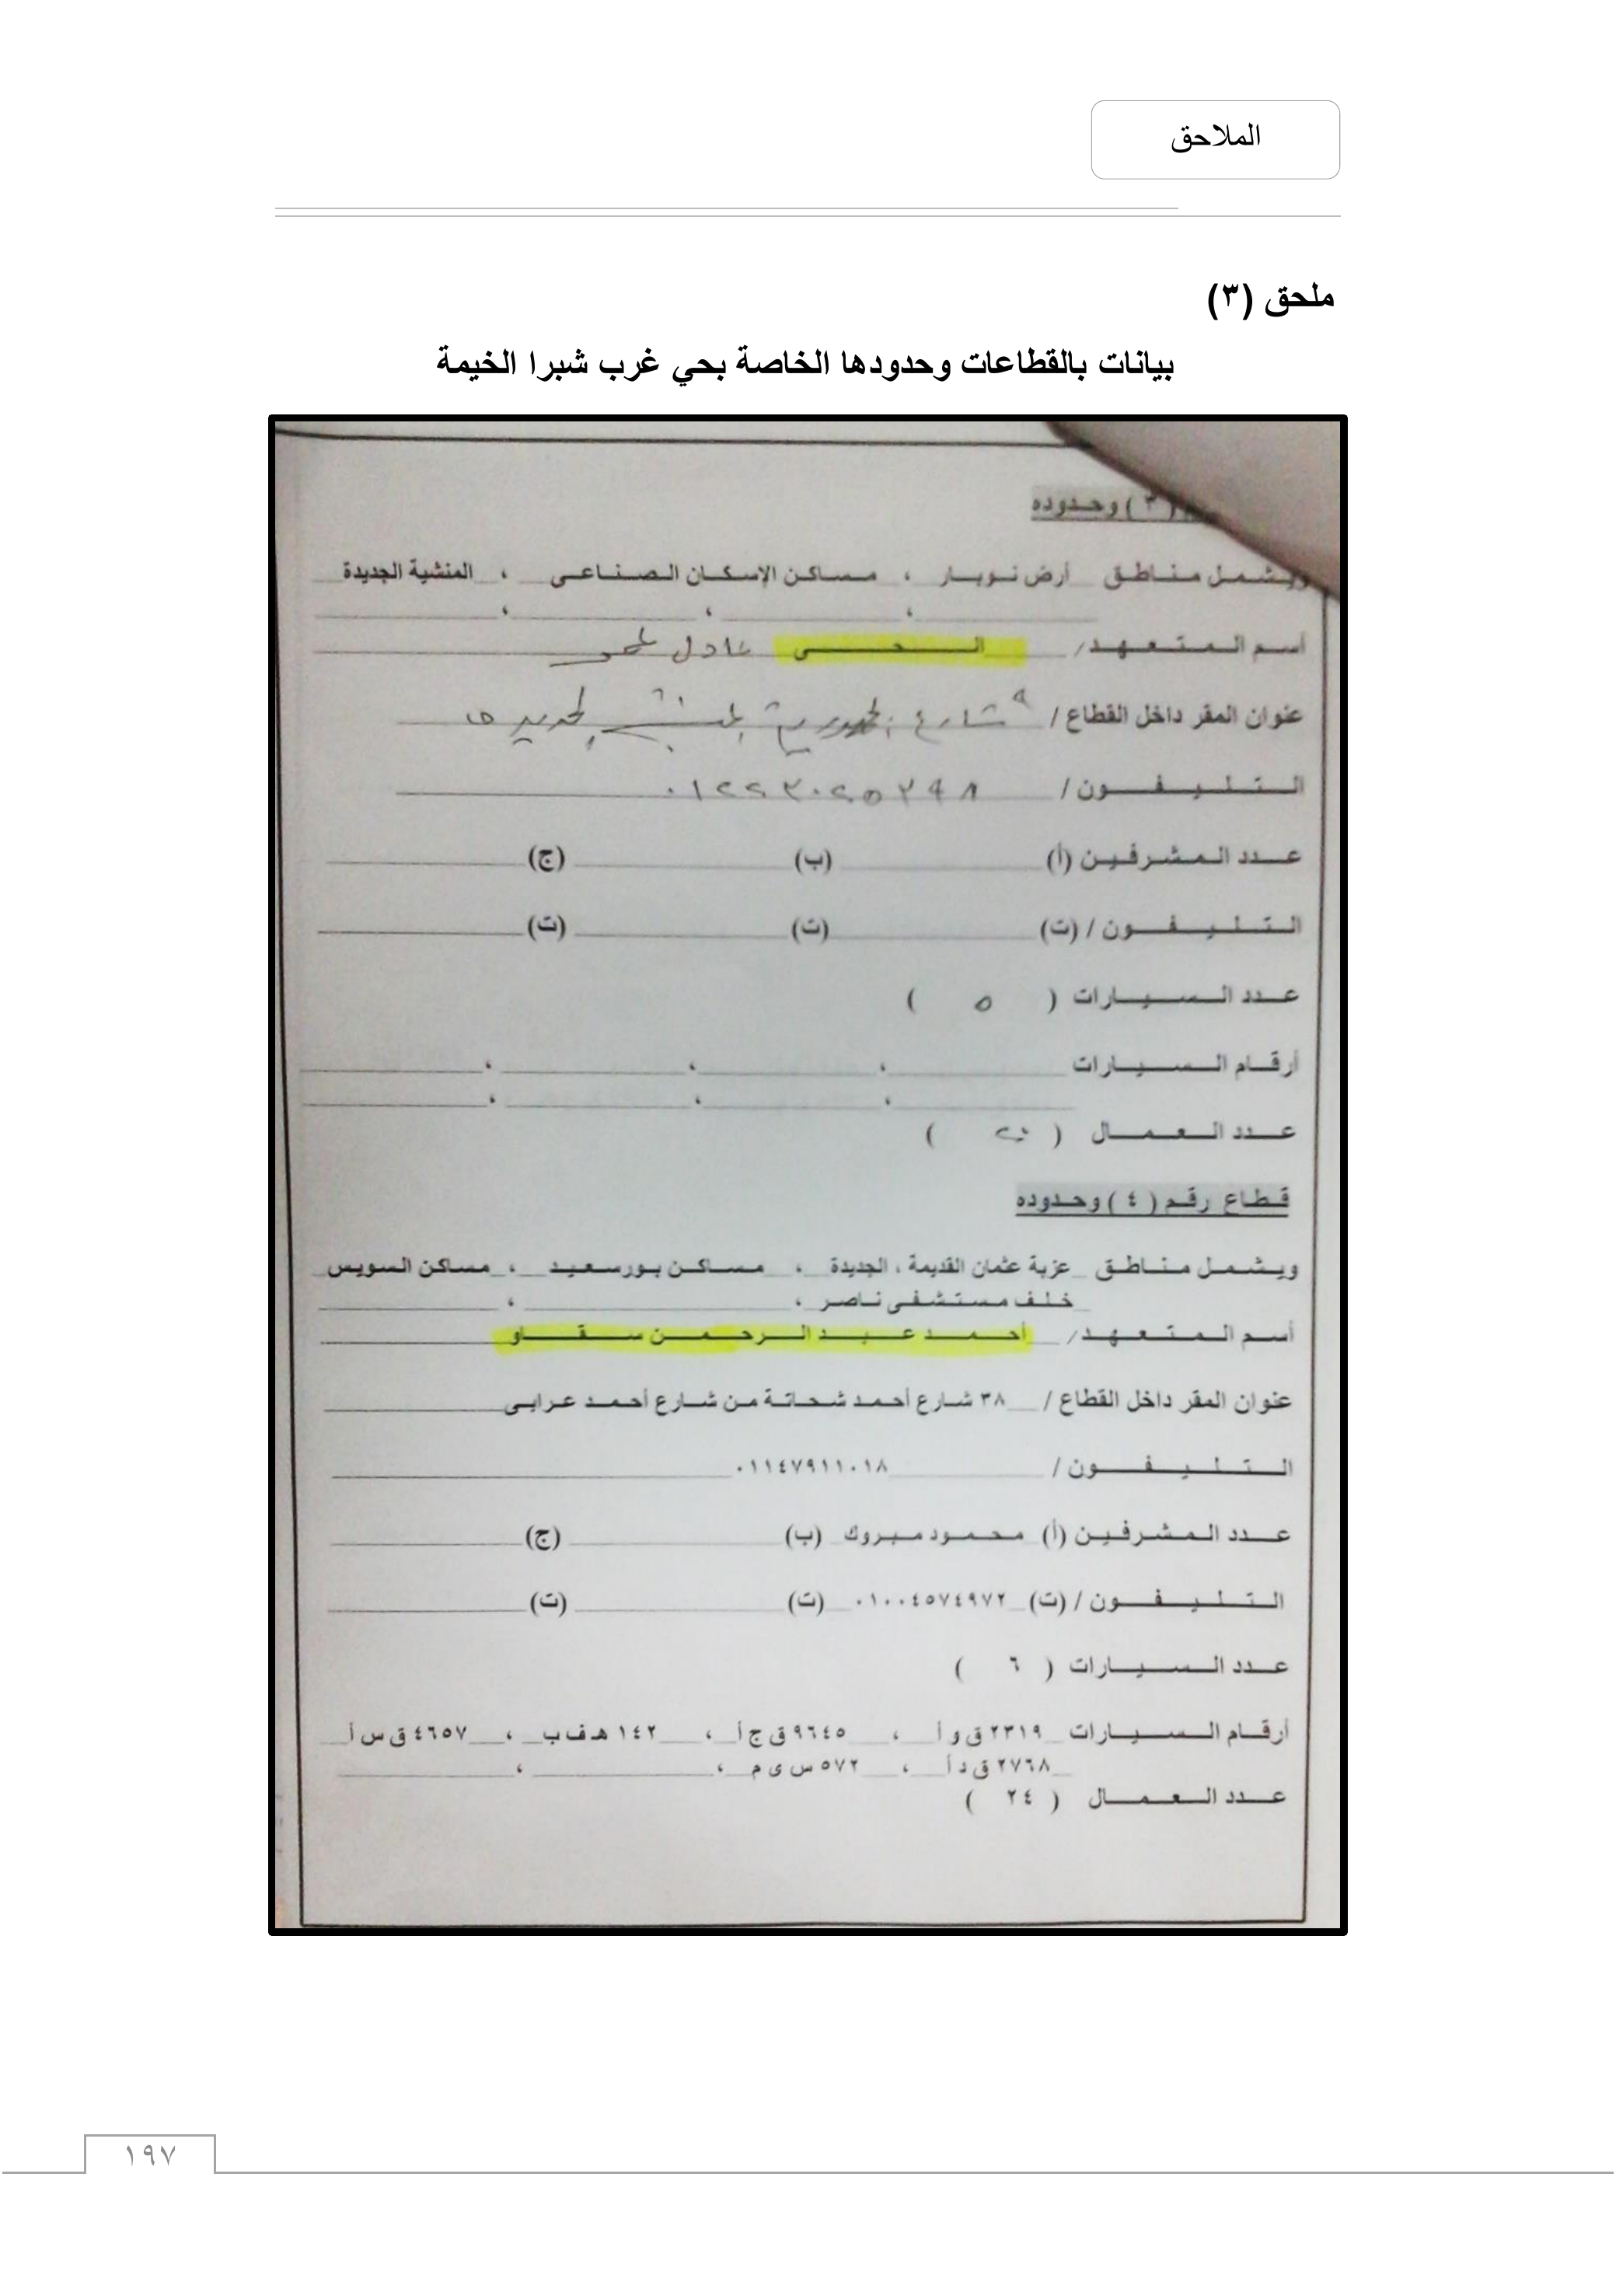 الملاحق
ملحق (٣)
بيانات بالقطاعات وحدودها الخاصة بحي غرب شبرا الخيمة
( ٣ ) وحدوده
ويشمل مناطق أرض نوبار ، مساكن الإسكان الصناعى ، المنشية الجديدة
، ، ،
أسم المتعهد/ الحى عادل
عنوان المقر داخل القطاع / ٩ شارع الجمهورية المنشية الجديدة
التليفون / ٠١٢٢٣٠٢٥٢٩٨
عدد المشرفين (أ) (ب) (ج)
التليفون / (ت) (ت) (ت)
عدد السيارات ( ٥ )
أرقام السيارات ، ، ،
، ، ،
عدد العمال ( )
قطاع رقم ( ٤ ) وحدوده
ويشمل مناطق عزبة عثمان القديمة ، الجديدة ، مساكن بورسعيد ، مساكن السويس
خلف مستشفى ناصر ، ،
أسم المتعهد/ أحمد عبد الرحمن سقاو
عنوان المقر داخل القطاع / ٣٨ شارع أحمد شحاتة من شارع أحمد عرابى
التليفون / ٠١١٤٧٩١١٠١٨
عدد المشرفين (أ) محمود مبروك (ب) (ج)
التليفون / (ت) ٠١٠٠٤٥٧٤٩٧٢ (ت) (ت)
عدد السيارات ( ٦ )
أرقام السيارات ٢٣١٩ ق و أ ، ٩٦٤٥ ق ج أ ، ١٤٢ هـ ف ب ، ٤٦٥٧ ق س أ
٢٧٦٨ ق د أ ، ٥٧٢ س ى م ، ،
عدد العمال ( ٢٤ )
١٩٧